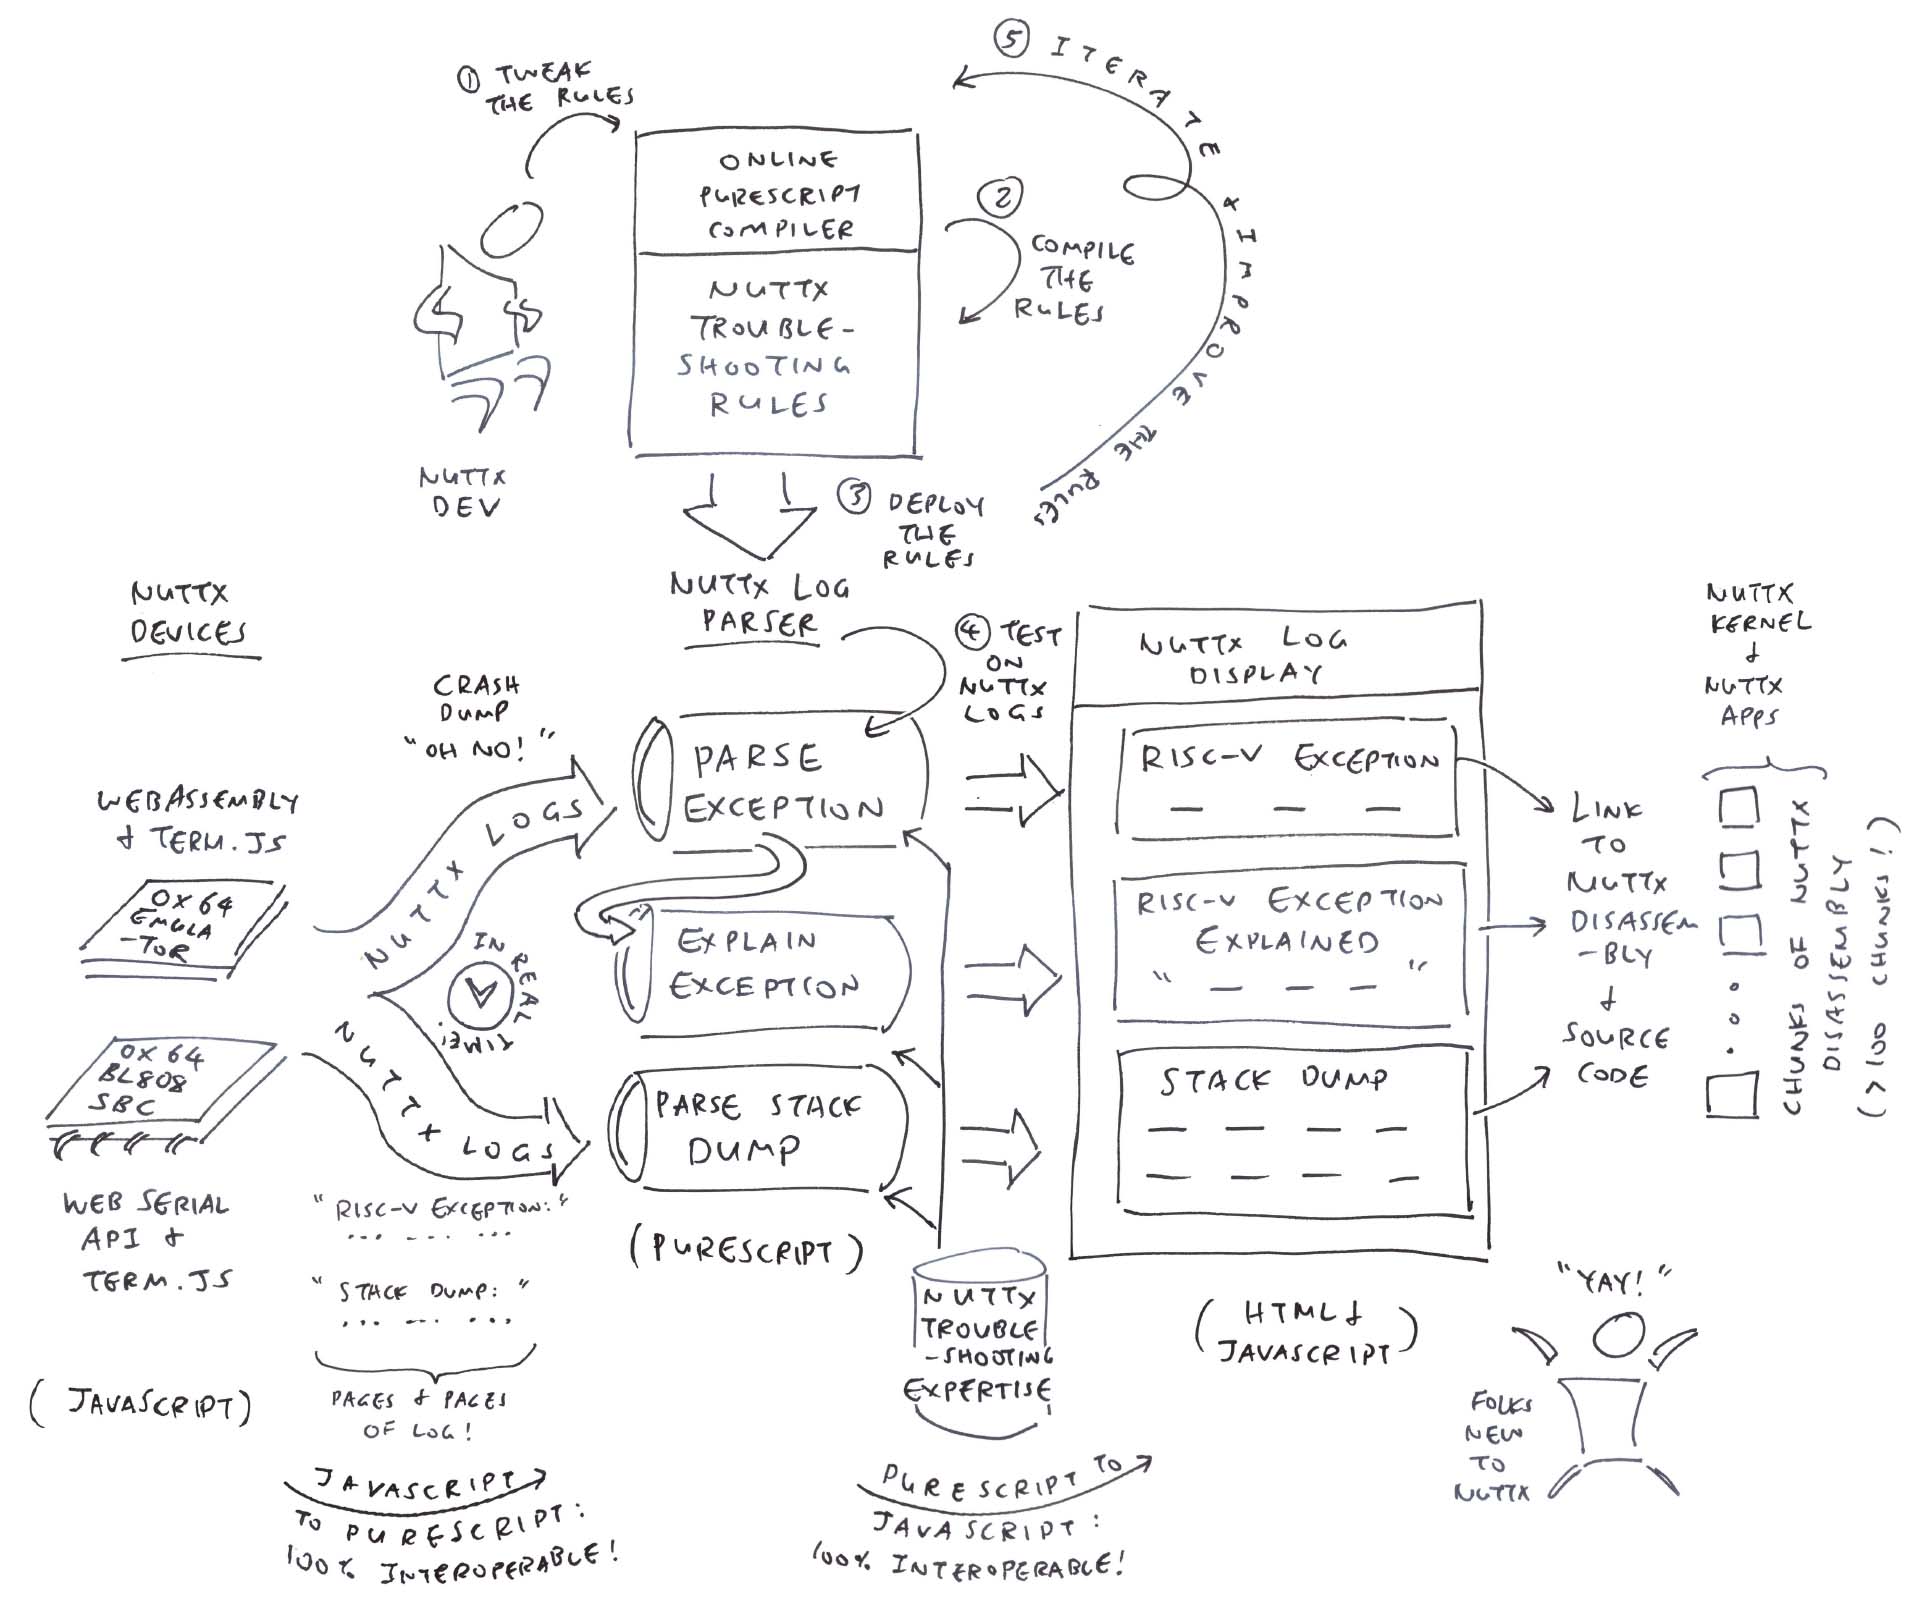 ① TWEAK
THE RULES
⑤ ITERATE & IMPROVE THE RULES
ONLINE
PURESCRIPT
COMPILER
② COMPILE
THE
RULES
NUTTX
TROUBLE-
SHOOTING
RULES
NUTTX
DEV
③ DEPLOY
THE
RULES
NUTTX
DEVICES
NUTTX LOG
PARSER
④ TEST
ON
NUTTX
LOGS
CRASH
DUMP
"OH NO!"
WEBASSEMBLY
& TERM.JS
OX64
EMULA
-TOR
OX64
BL808
SBC
WEB SERIAL
API &
TERM.JS
(JAVASCRIPT)
NUTTX LOGS
IN REAL TIME!
NUTTX LOGS
"RISC-V EXCEPTION:"
... ... ...
"STACK DUMP:"
... ... ...
PAGES & PAGES
OF LOG!
JAVASCRIPT
TO PURESCRIPT:
100% INTEROPERABLE!
PARSE
EXCEPTION
EXPLAIN
EXCEPTION
PARSE STACK
DUMP
(PURESCRIPT)
NUTTX
TROUBLE
-SHOOTING
EXPERTISE
PURESCRIPT TO
JAVASCRIPT:
100% INTEROPERABLE!
NUTTX LOG
DISPLAY
RISC-V EXCEPTION
— — —
RISC-V EXCEPTION
EXPLAINED
" — — — "
STACK DUMP
— — — —
— — — —
(HTML &
JAVASCRIPT)
LINK
TO
NUTTX
DISASSEM
-BLY
&
SOURCE
CODE
NUTTX
KERNEL
&
NUTTX
APPS
CHUNKS OF NUTTX
DISASSEMBLY
(>100 CHUNKS!)
"YAY!"
FOLKS
NEW
TO
NUTTX